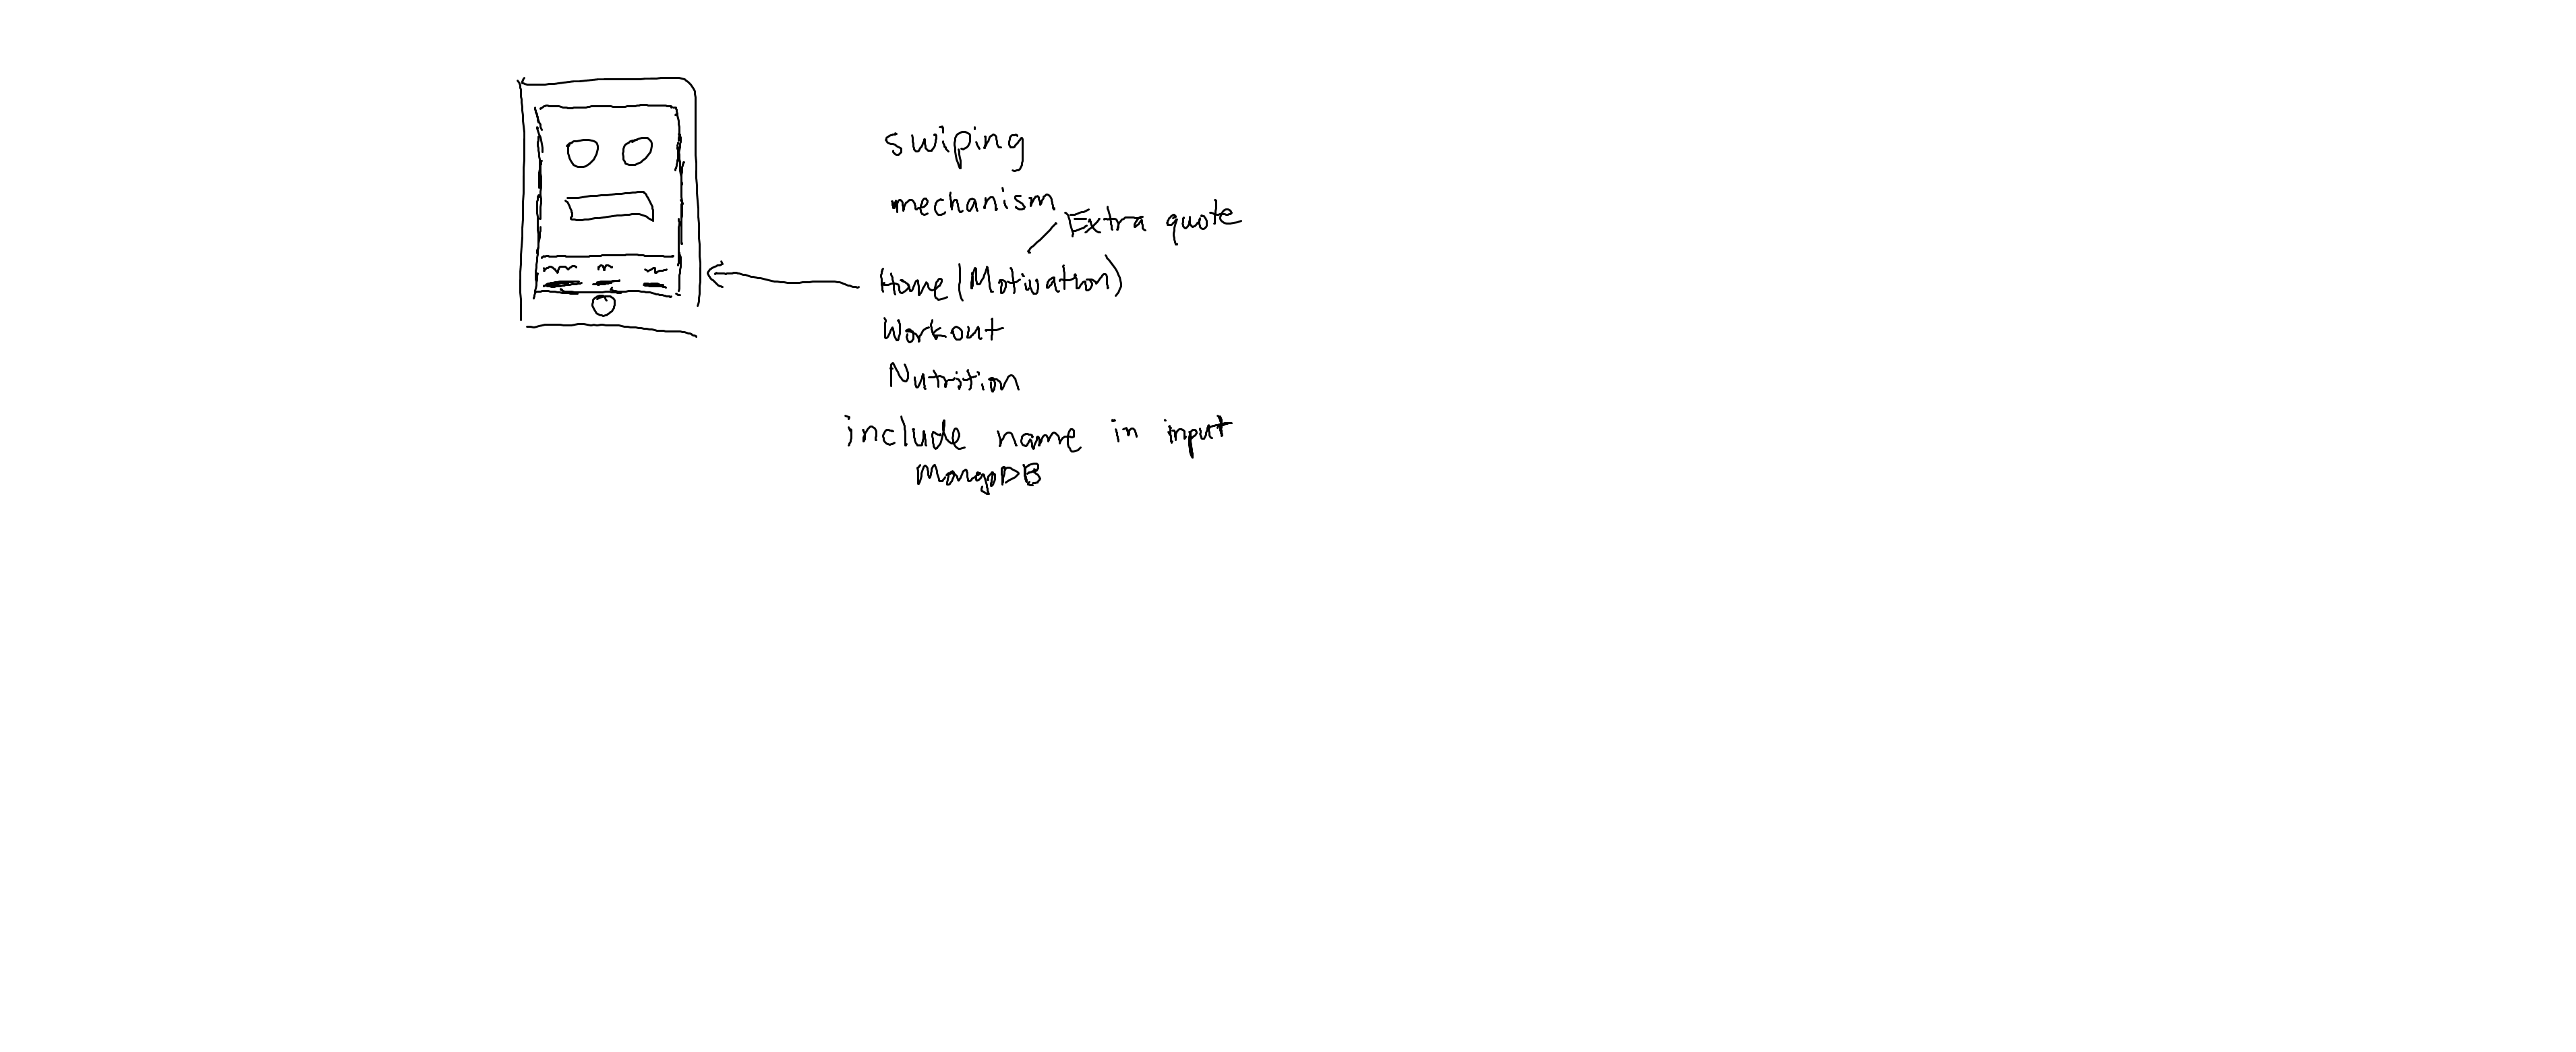 swiping
mechanism
Extra quote
Home (Motivation)
Workout
Nutrition
include name in input
MongoDB